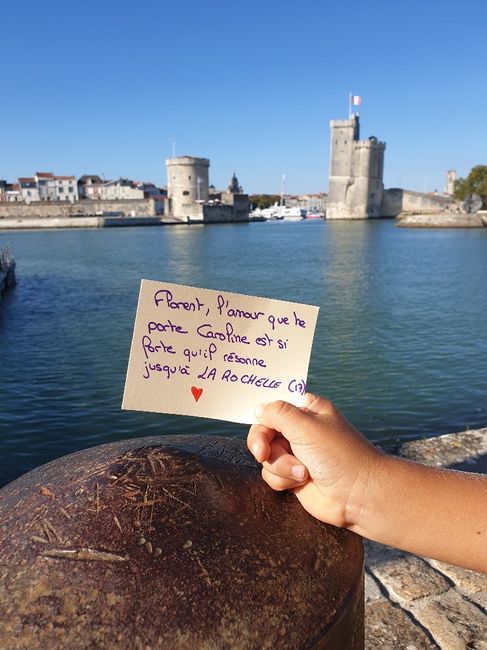 Florent, l'amour que te
porte Caroline est si
forte qu'il résonne
jusqu'à LA ROCHELLE (17)